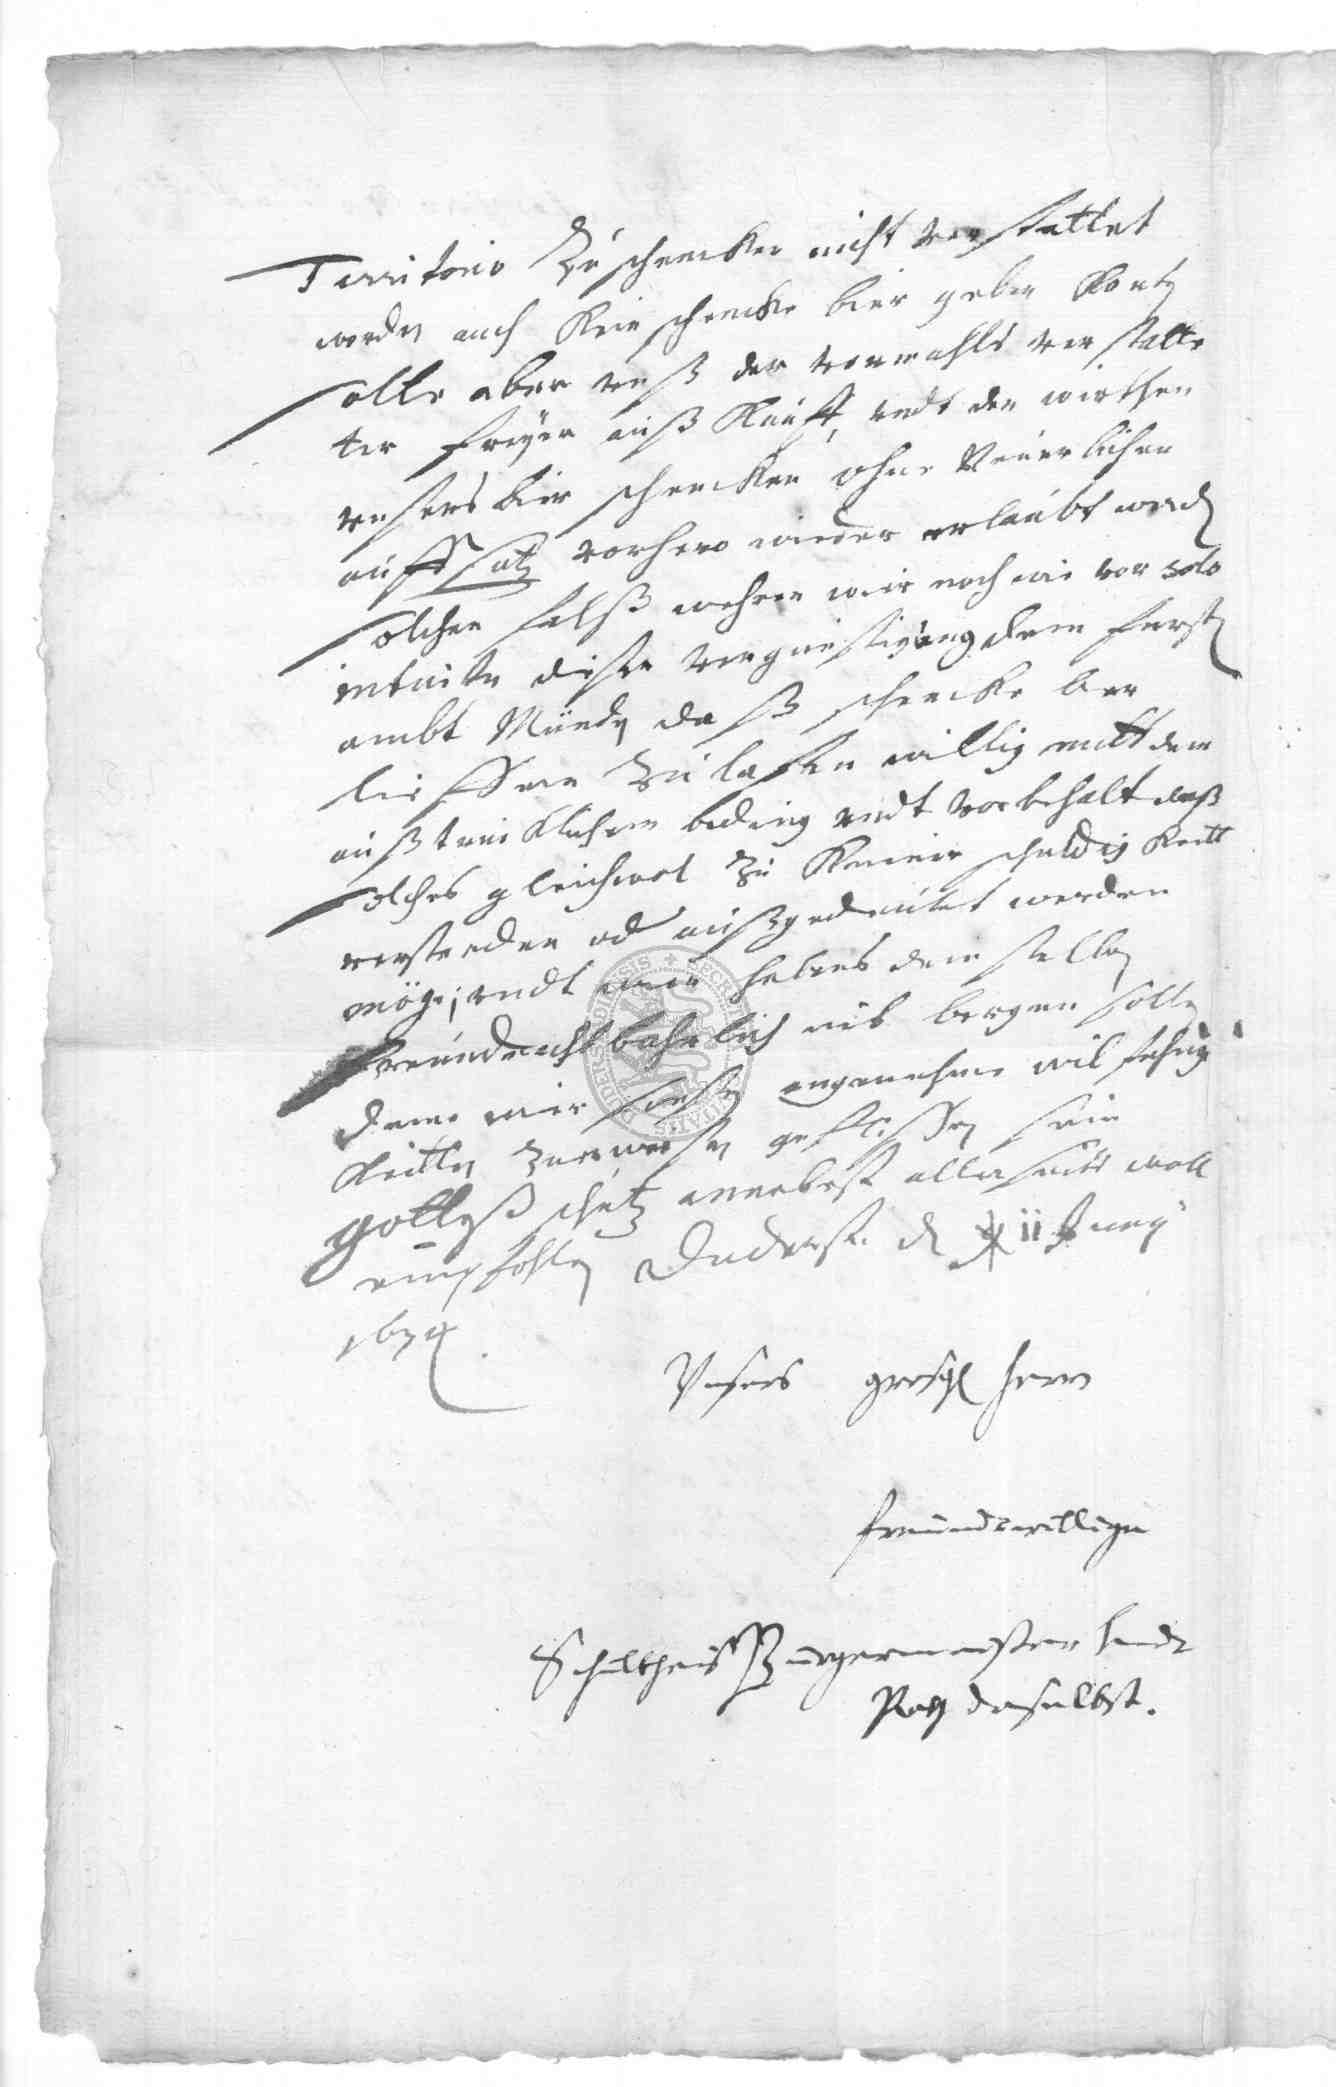 Territorio Zu schencken nicht verstattet
werden auch kein schencke bier geben konten
solte aber unß der vormahls verstatte
ter freyer auß kauff, undt den wirthen
unsers bier schencken ohne Neuerlichen
auffsatz vorhero wieder erlaubt werden
solchen falß wehren wir nach wie vor solo
intuitu dieser vergünstigung dem Fürstl
ambt Münden daß schencke bier
lieffern zu laßen willig mitt dem
außtrücklichen beding undt vorbehalt daß
solches gleichwol zu keiner schuldigkeitt
verstanden od außgedeutet werden
möge; undt wir habens denselben
freundnachbahrlich nit bergen sollen
denen wir sonsten angenehme wilfahrig
keitten zuerweisen geflissen sein
gotteß schutz annebest allerseits woll
empfohlen Duderst. d ii Juny
1674.
Unsers großgl Herrn
freundtwillige
Schultheis Bürgermeister undt
Rath daselbst.
SECRET
DUDERSTADIENSIS